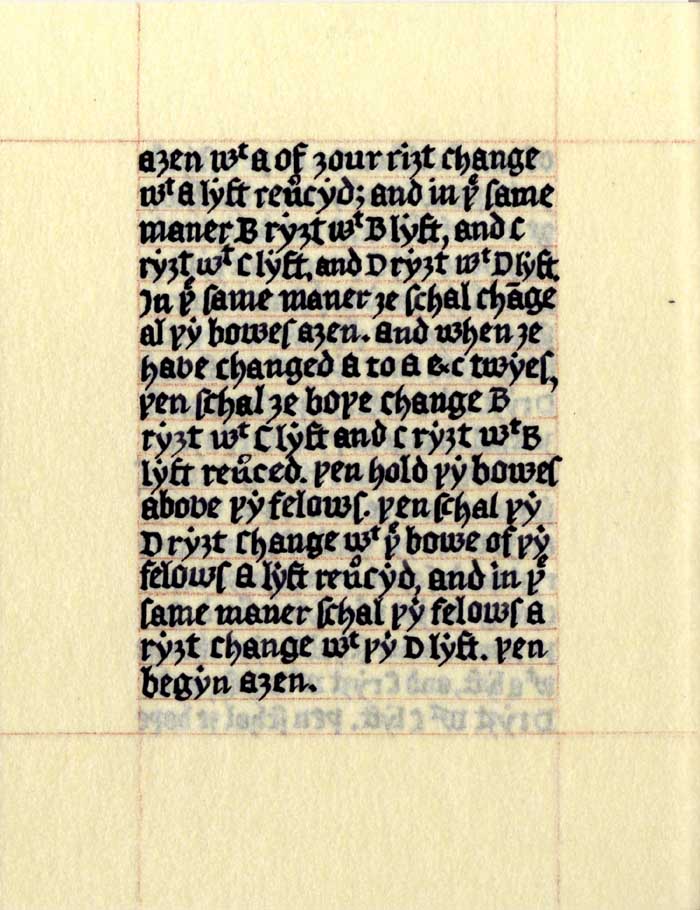 aȝen wᵗ a of ȝour riȝt change
wᵗ a lẏft reu̾cẏd; and in þᵉ same
maner B rẏȝt wᵗ B lẏft, and C
rẏȝt wᵗ C lẏft, and D rẏȝt wᵗ D lẏft.
In þᵉ same maner ȝe schal chāge
al þẏ bowes aȝen. and when ȝe
have changed A to A &c twẏes,
þen schal ȝe boþe change B
rẏȝt wᵗ C lẏft and C rẏȝt wᵗ B
lẏft reu̾ced. þen hold þẏ bowes
above þẏ felows. þen schal þẏ
D rẏȝt change wᵗ þᵉ bowe of þẏ
felows A lẏft reu̾cẏd, and in þᵉ
same maner schal þẏ felows A
rẏȝt change wᵗ þẏ D lẏft. þen
begẏn aȝen.